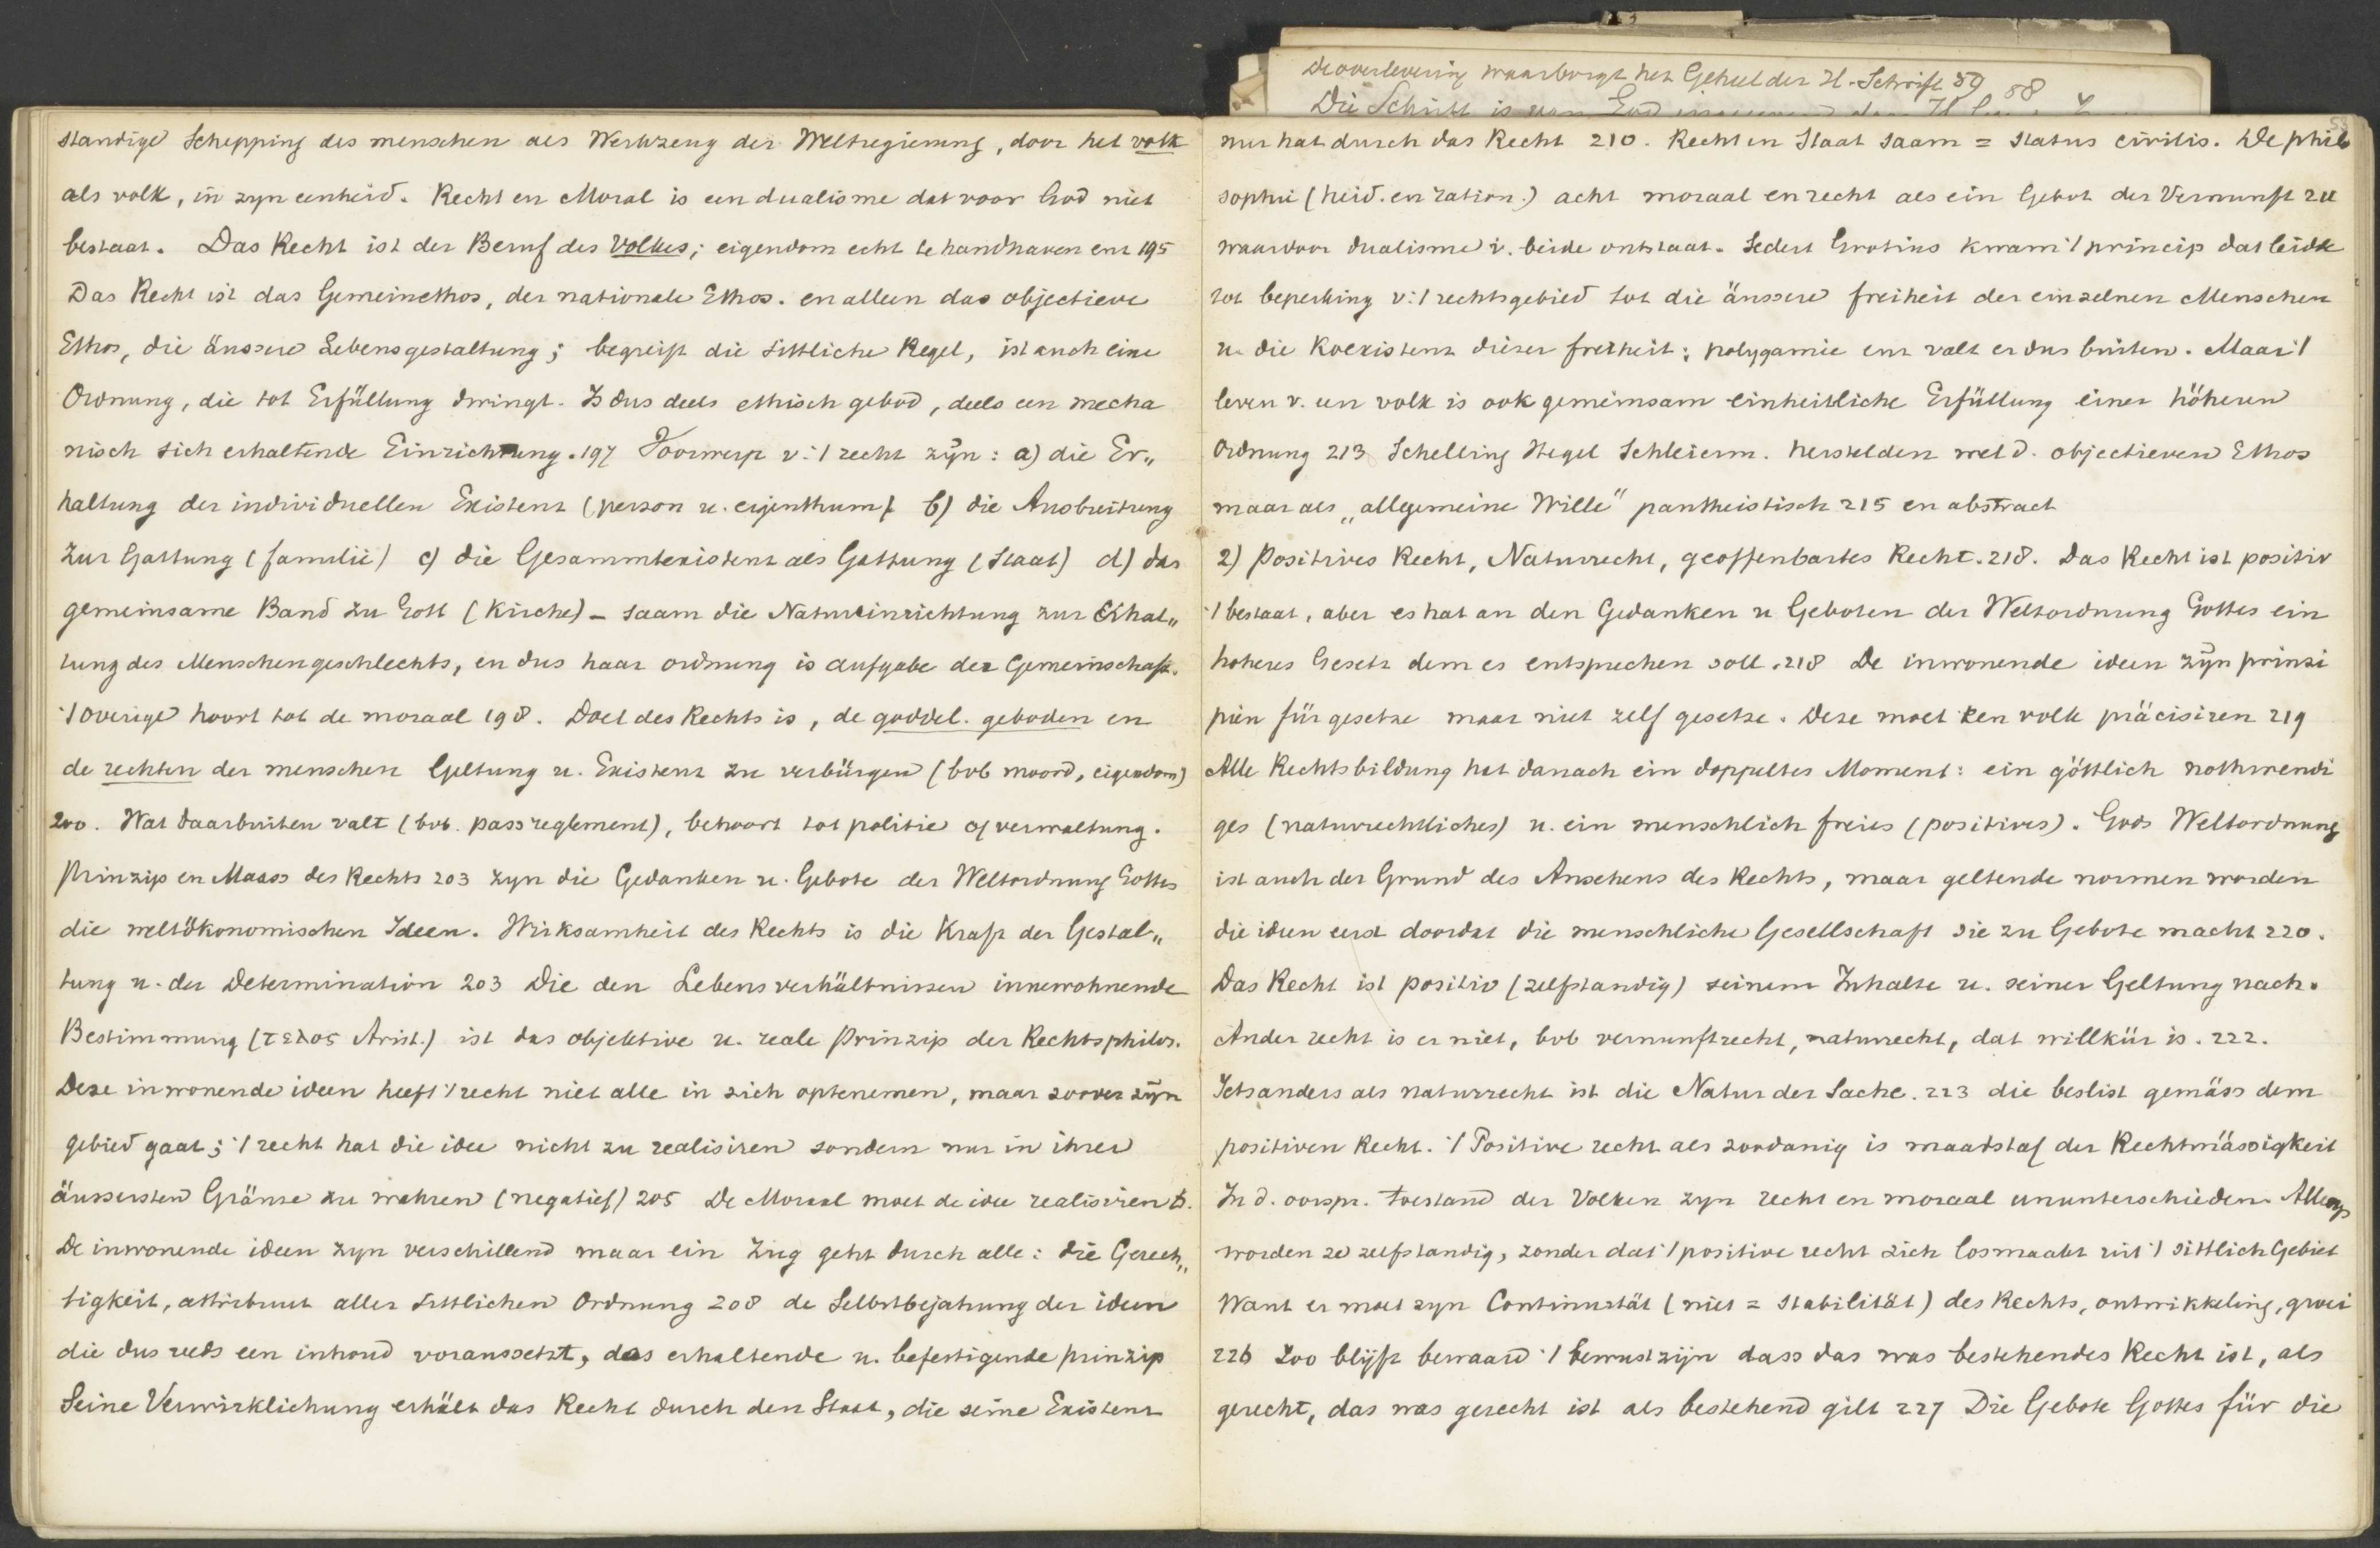 De overlevering waarborgt het Geheel der H. Schrift 59 58
Die Schrift is van God
standige Schepping des menschen als Werkzeug der Weltregierung, door het volk
als volk, in zyn eenheid. Recht en Moral is een dualisme dat voor God niet
bestaat. Das Recht ist der Beruf des Volkes; eigendom echt te handhaven enz 195
Das Recht ist das Gemeinethos, der nationale Ethos. en alleen das objectieve
Ethos, die äussere Lebensgestaltung; begreift die sittliche Regel, ist auch eine
Ordnung, die tot Erfüllung dwingt. Is dus deels ethisch gebod, deels een mecha
nisch sich erhaltende Einrichtung. 197 Voorwerp v. 't recht zijn: a) die Er„
haltung der individuellen Existenz (person u. eigenthum) b) die Ausbreitung
zur Gattung (familie) c) die Gesammtexistenz als Gattung (Staat) d) das
gemeinsame Band zu Gott (Kirche) - saam die Natureinrichtung zur Erhal„
tung des Menschengeschlechts, en dus haar ordnung is aufgabe der Gemeinschaft.
't Overige hoort tot de moraal 198. Doel des Rechts is, de goddel. geboden en
de rechten der menschen Geltung u. Existenz zu verbürgen (bvb moord, eigendom)
200. Wat daarbuiten valt (bvb. passreglement), behoort tot politie of verwaltung.
Prinzip en Maass des Rechts 203 zyn die Gedanken u. Gebote der Weltordnung Gottes
die weltökonomischen Ideen. Wirksamheit des Rechts is die Kraft der Gestal„
tung u. der Determination 203 Die den Lebensverhältnissen innewohnende
Bestimmung (τελος Arist.) ist das objektive u. reale Prinzip der Rechtsphilos.
Deze inwonende ideen heeft 't recht niet alle in sich optenemen, maar zoover zijn
gebied gaat; 't recht hat die idee nicht zu realisiren sondern nur in ihrer
äussersten Gränze zu wahren (negatief) 205 De Moraal moet de idee realisiren
De inwonende ideen zyn verschillend maar ein Zug geht durch alle: die Gerech„
tigkeit, attribuut aller sittlichen Ordnung 208 de Selbstbejahung der ideen
die dus reeds een inhoud voraussetzt, das erhaltende u. befestigende prinzip
Seine Verwirklichung erhält das Recht durch den Staat, die seine Existenz
nur hat durch das Recht 210. Recht en Staat saam = status civilis. De philo
sophie (heid. en ration.) acht moraal en recht als ein Gebot der Vernunft zu
waardoor dualisme v. beide ontstaat. Sedert Grotius kwam 't princip dat leidde
tot beperking v. 't rechtsgebied tot die äussere freiheit der einzelnen Menschen
u. die Koexistenz dieser freiheit; polygamie enz valt er dus buiten. Maar 't
leven v. een volk is ook gemeinsam einheitliche Erfüllung einer höheren
Ordnung 213 Schelling Hegel Schleierm. herstelden wel d. objectieven Ethos
maar als „allgemeine Wille" pantheistisch 215 en abstract
2) Positives Recht, Naturrecht, geoffenbartes Recht. 218. Das Recht ist positiv
't bestaat, aber es hat an den Gedanken u Geboten der Weltordnung Gottes ein
hoheres Gesetz dem es entsprechen soll. 218 De inwonende ideen zijn prinzi
pien für gesetze maar niet zelf gesetze. Deze moet een volk präcisiren 219
Alle Rechtsbildung hat danach ein doppeltes Moment: ein göttlich nothwendi
ges (naturrechtliches) u. ein menschlich freies (positives). Gods Weltordnung
ist auch der Grund des Ansehens des Rechts, maar geltende normen worden
die ideen eerst doordat die menschliche Gesellschaft sie zu Gebote macht 220.
Das Recht ist positiv (zelfstandig) seinem Inhalte u. seiner Geltung nach.
Ander recht is er niet, bvb vernunftrecht, naturrecht, dat willkür is. 222.
Iets anders als naturrecht ist die Natur der Sache. 223 die beslist gemäss dem
positiven Recht. 't Positive recht als zoodanig is maatstaf der Rechtmässigkeit
In d. oorspr. toestand der Volken zyn recht en moraal ununterschieden. Allengs
worden ze zelfstandig, zonder dat 't positive recht zich losmaakt uit 't sittlich Gebiet
Want er moet zyn Continuität (niet = Stabilität) des Rechts, ontwikkeling, groei
226 Zoo blijft bewaard 't bewustzijn dass das was bestehendes Recht ist, als
gerecht, das was gerecht ist als bestehend gilt 227 Die Gebote Gottes für die